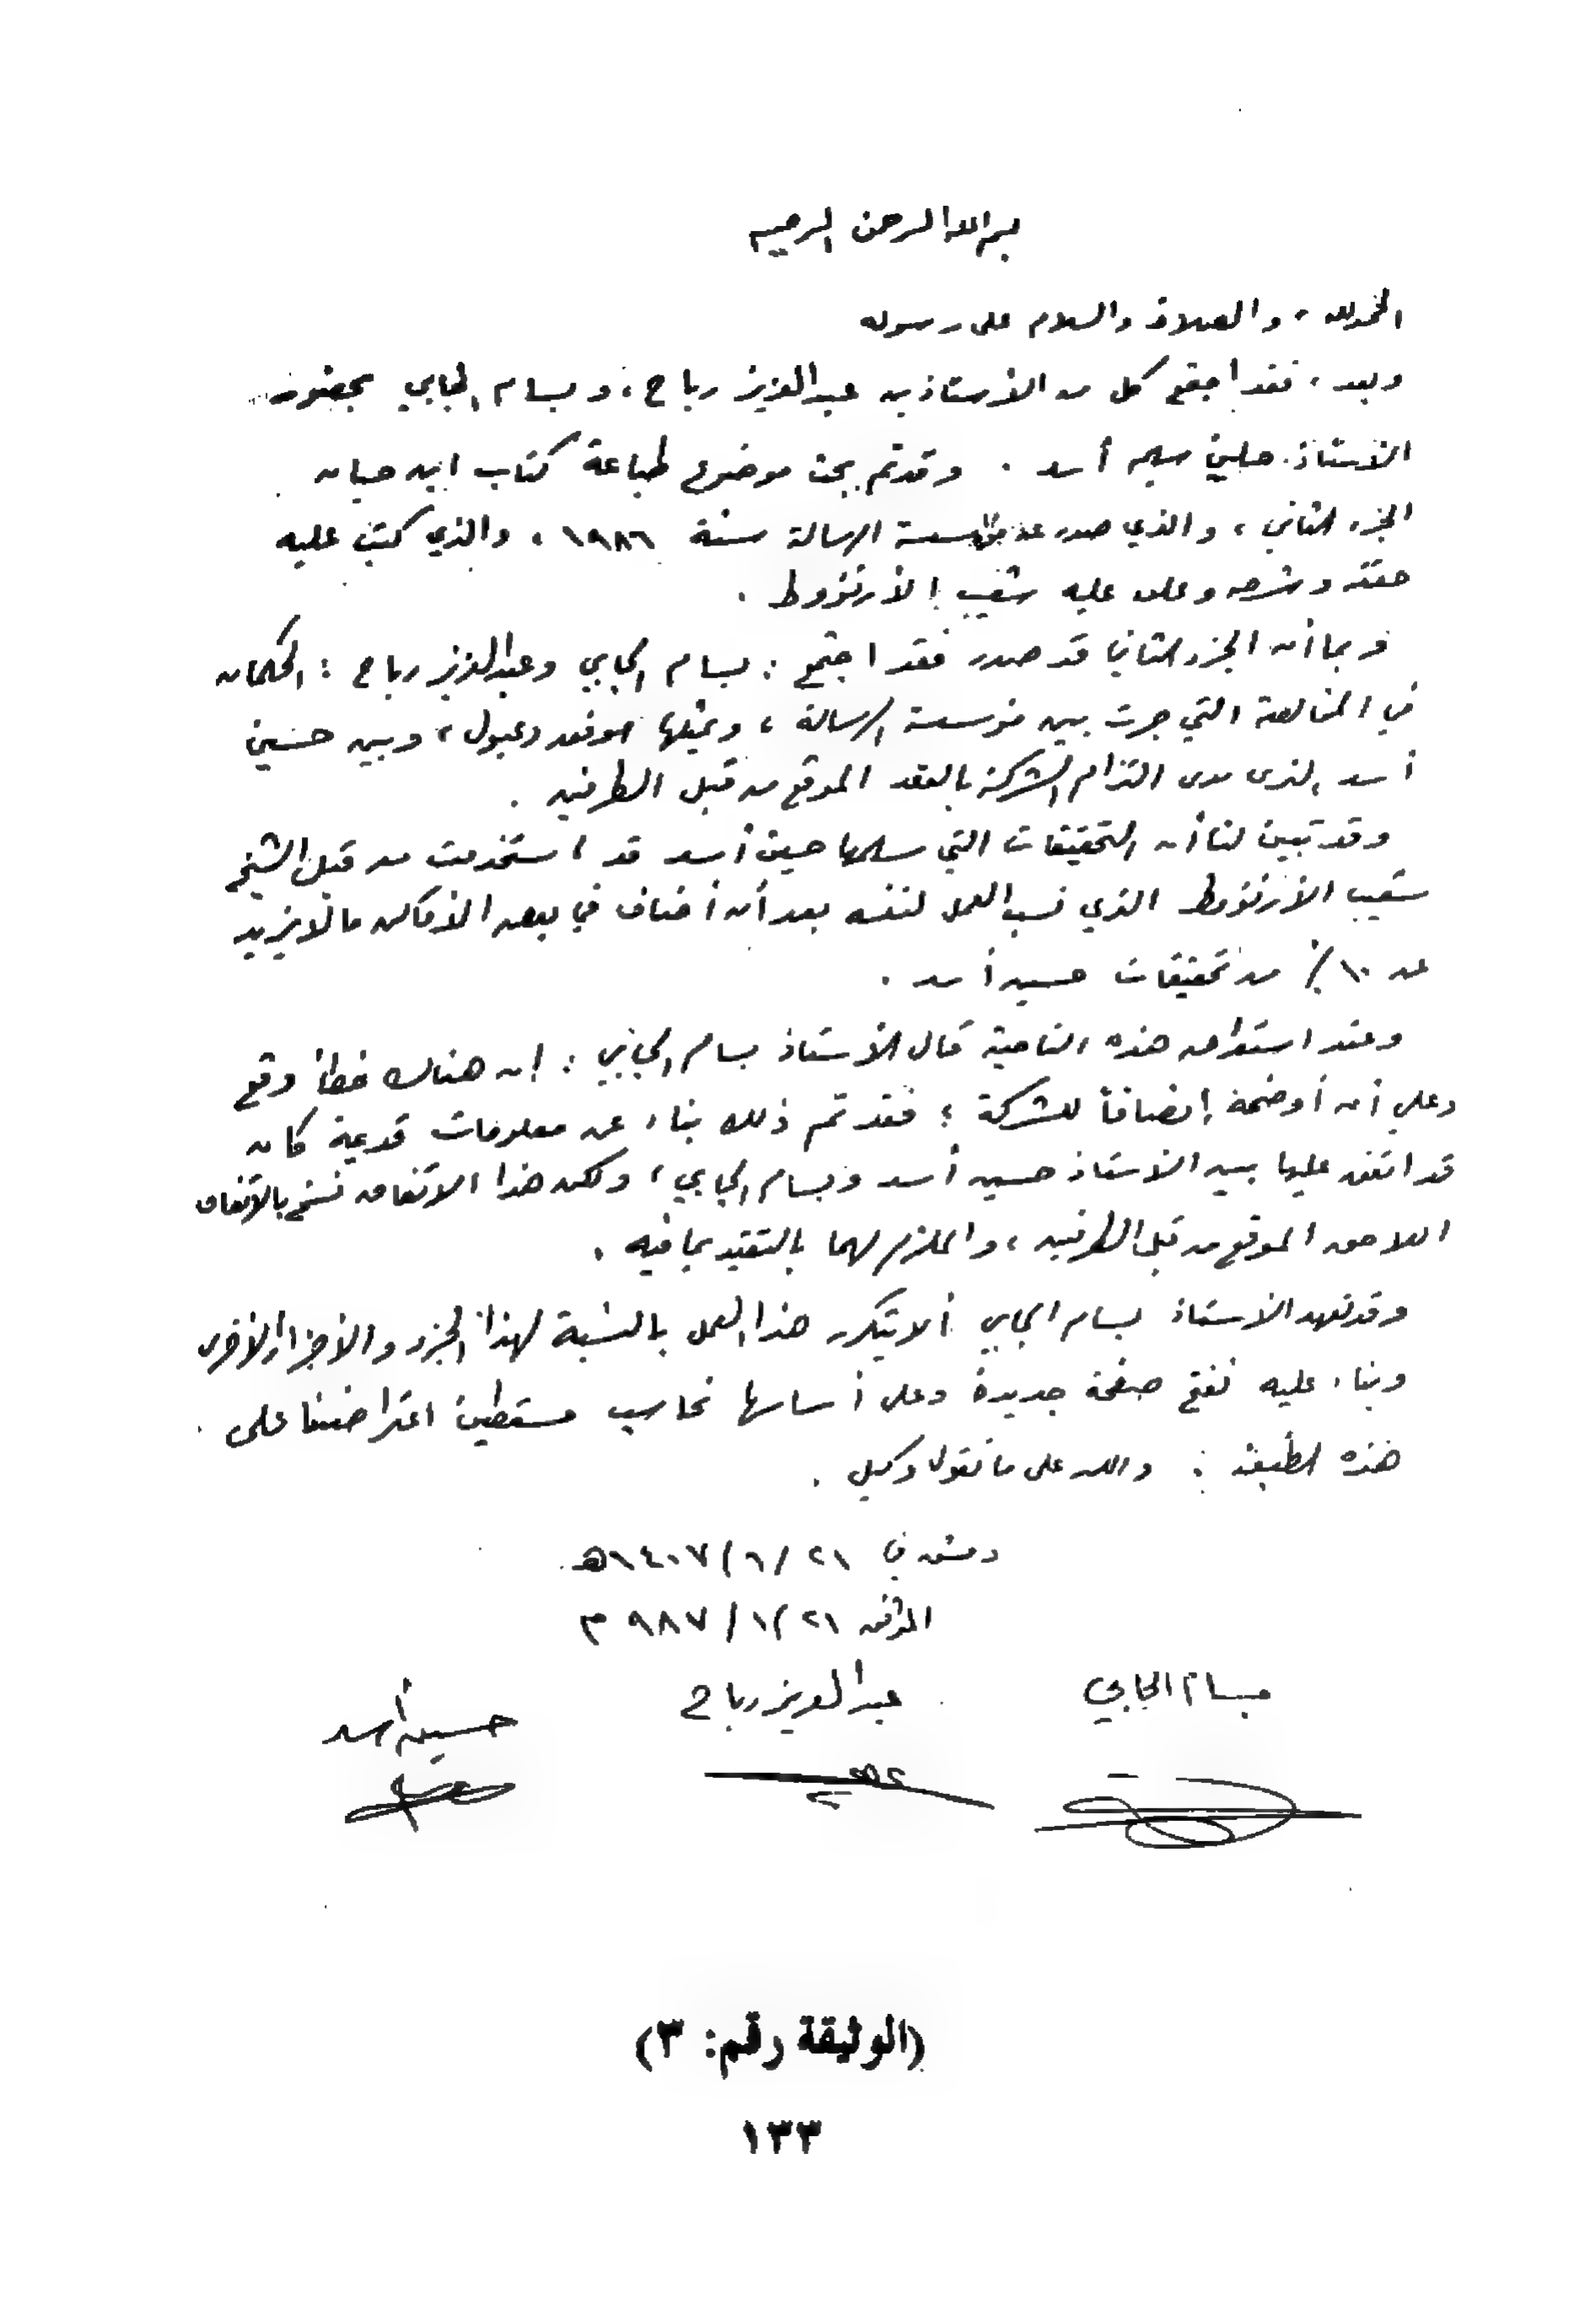 بسم الله الرحمن الرحيم
الحمد لله، والصلاة والسلام على رسوله
وبعد، فقد اجتمع كل من الأستاذين عبد العزيز رباح، وبسام الجابي بحضور
الأستاذ حسين سليم أسد. وقد تم بحث موضوع طباعة كتاب ابن حبان
الجزء الثاني، والذي صدر عن مؤسسة الرسالة سنة ١٩٨٦، والذي كتب عليه
حققه وشرحه وعلق عليه شعيب الأرنؤوط.
وبما أن الجزء الثاني قد صدر فقد اجتمع: بسام الجابي وعبد العزيز رباح: الحكمان
في المخالعة التي جرت بين مؤسسة الرسالة، ويمثلها موفق دعبول، وبين حسين
أسد لنرى مدى التزام الشركة بالعقد الموقع من قبل الطرفين.
وقد تبين لنا أن التحقيقات التي سلمها حسين أسد قد استخدمت من قبل الشيخ
شعيب الأرنؤوط الذي نسب العمل لنفسه بعد أن أضاف في بعض الأماكن ما لا يزيد
عن ١٠٪ من تحقيقات حسين أسد.
وعند استعراض هذه الناحية قال الأستاذ بسام الجابي: إن هناك خطأ وقع
وعلي أن أوضحه إنصافاً للشركة؛ فقد تم ذلك بناء عن معلومات قديمة كان
قد اتفق عليها بين الأستاذ حسين أسد وبسام الجابي، ولكن هذا الاتفاق نسخ بالاتفاق
اللاحق الموقع من قبل الطرفين، والملزم لهما بالتقيد بما فيه.
وقد تعهد الأستاذ بسام الجابي ألا يتكرر هذا العمل بالنسبة لهذا الجزء والأجزاء الأخرى
وبناء عليه نفتح صفحة جديدة وعلى أساسها نحاسب مسقطين اعتراضنا على
هذه الطبعة. والله على ما نقول وكيل.
دمشق في ٢١/٦/١٤٠٧هـ
الموافق ٢١/١/٩٨٧م
بسام الجابي
عبد العزيز رباح
حسين أسد
(الوثيقة رقم: ٣)
١٣٣